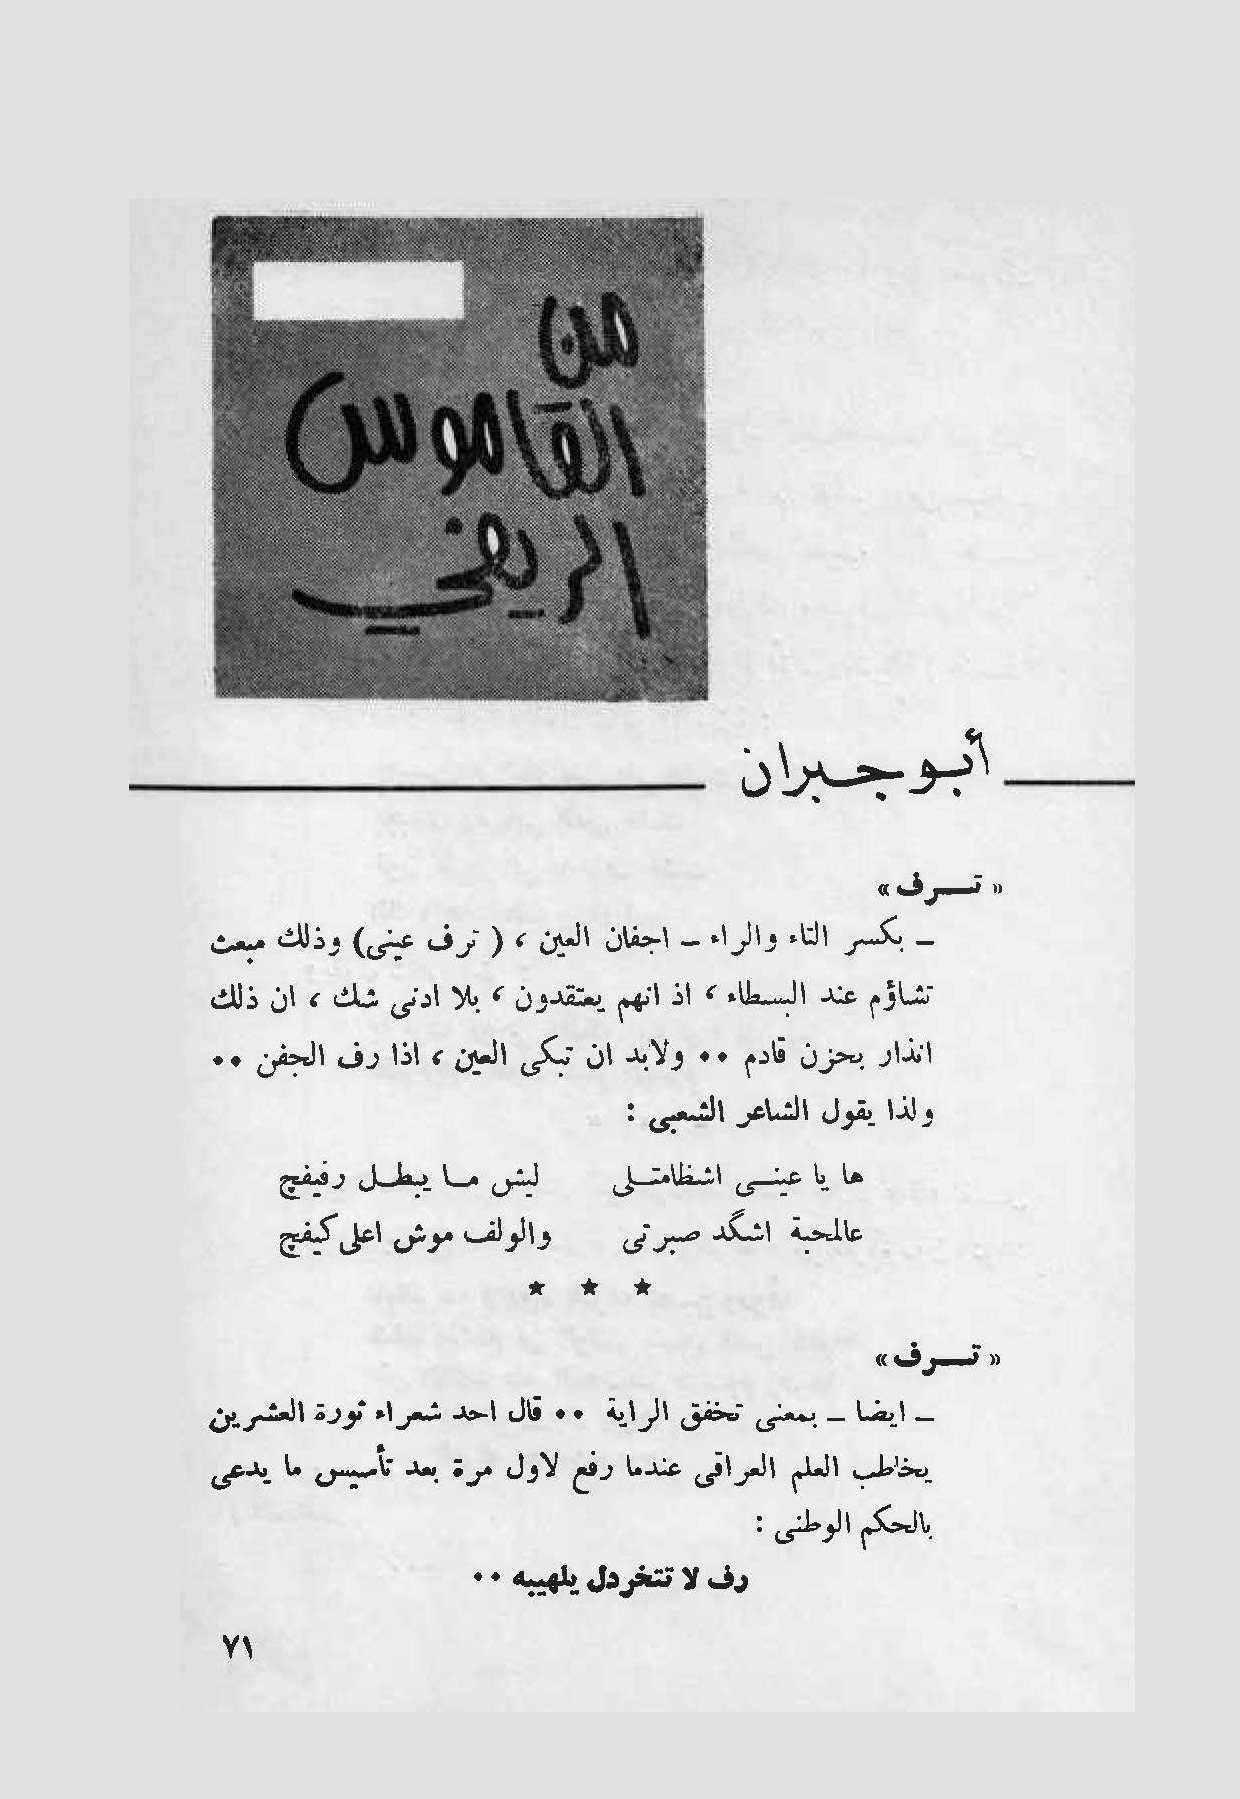 من
القاموس
الريفي
أبو جبران
« تــرف »
ـ بكسر التاء والراء ـ اجفان العين ، ( ترف عيني) وذلك مبعث
تشاؤم عند البسطاء ، اذ انهم يعتقدون ، بلا ادنى شك ، ان ذلك
انذار بحزن قادم ٠٠ ولابد ان تبكى العين ، اذا رف الجفن ٠٠
ولذا يقول الشاعر الشعبى :
ها يا عينــى اشظامتــلى ليش مــا يبطــل رفيفچ
عالمحبة اشگد صبرتى والولف موش اعلى كيفچ
★ ★ ★
« تــرف »
ـ ايضا ـ بمعنى تخفق الراية ٠٠ قال احد شعراء ثورة العشرين
يخاطب العلم العراقى عندما رفع لاول مرة بعد تأسيس ما يدعى
بالحكم الوطنى :
رف لا تتخردل يلهيبه ٠٠
٧١